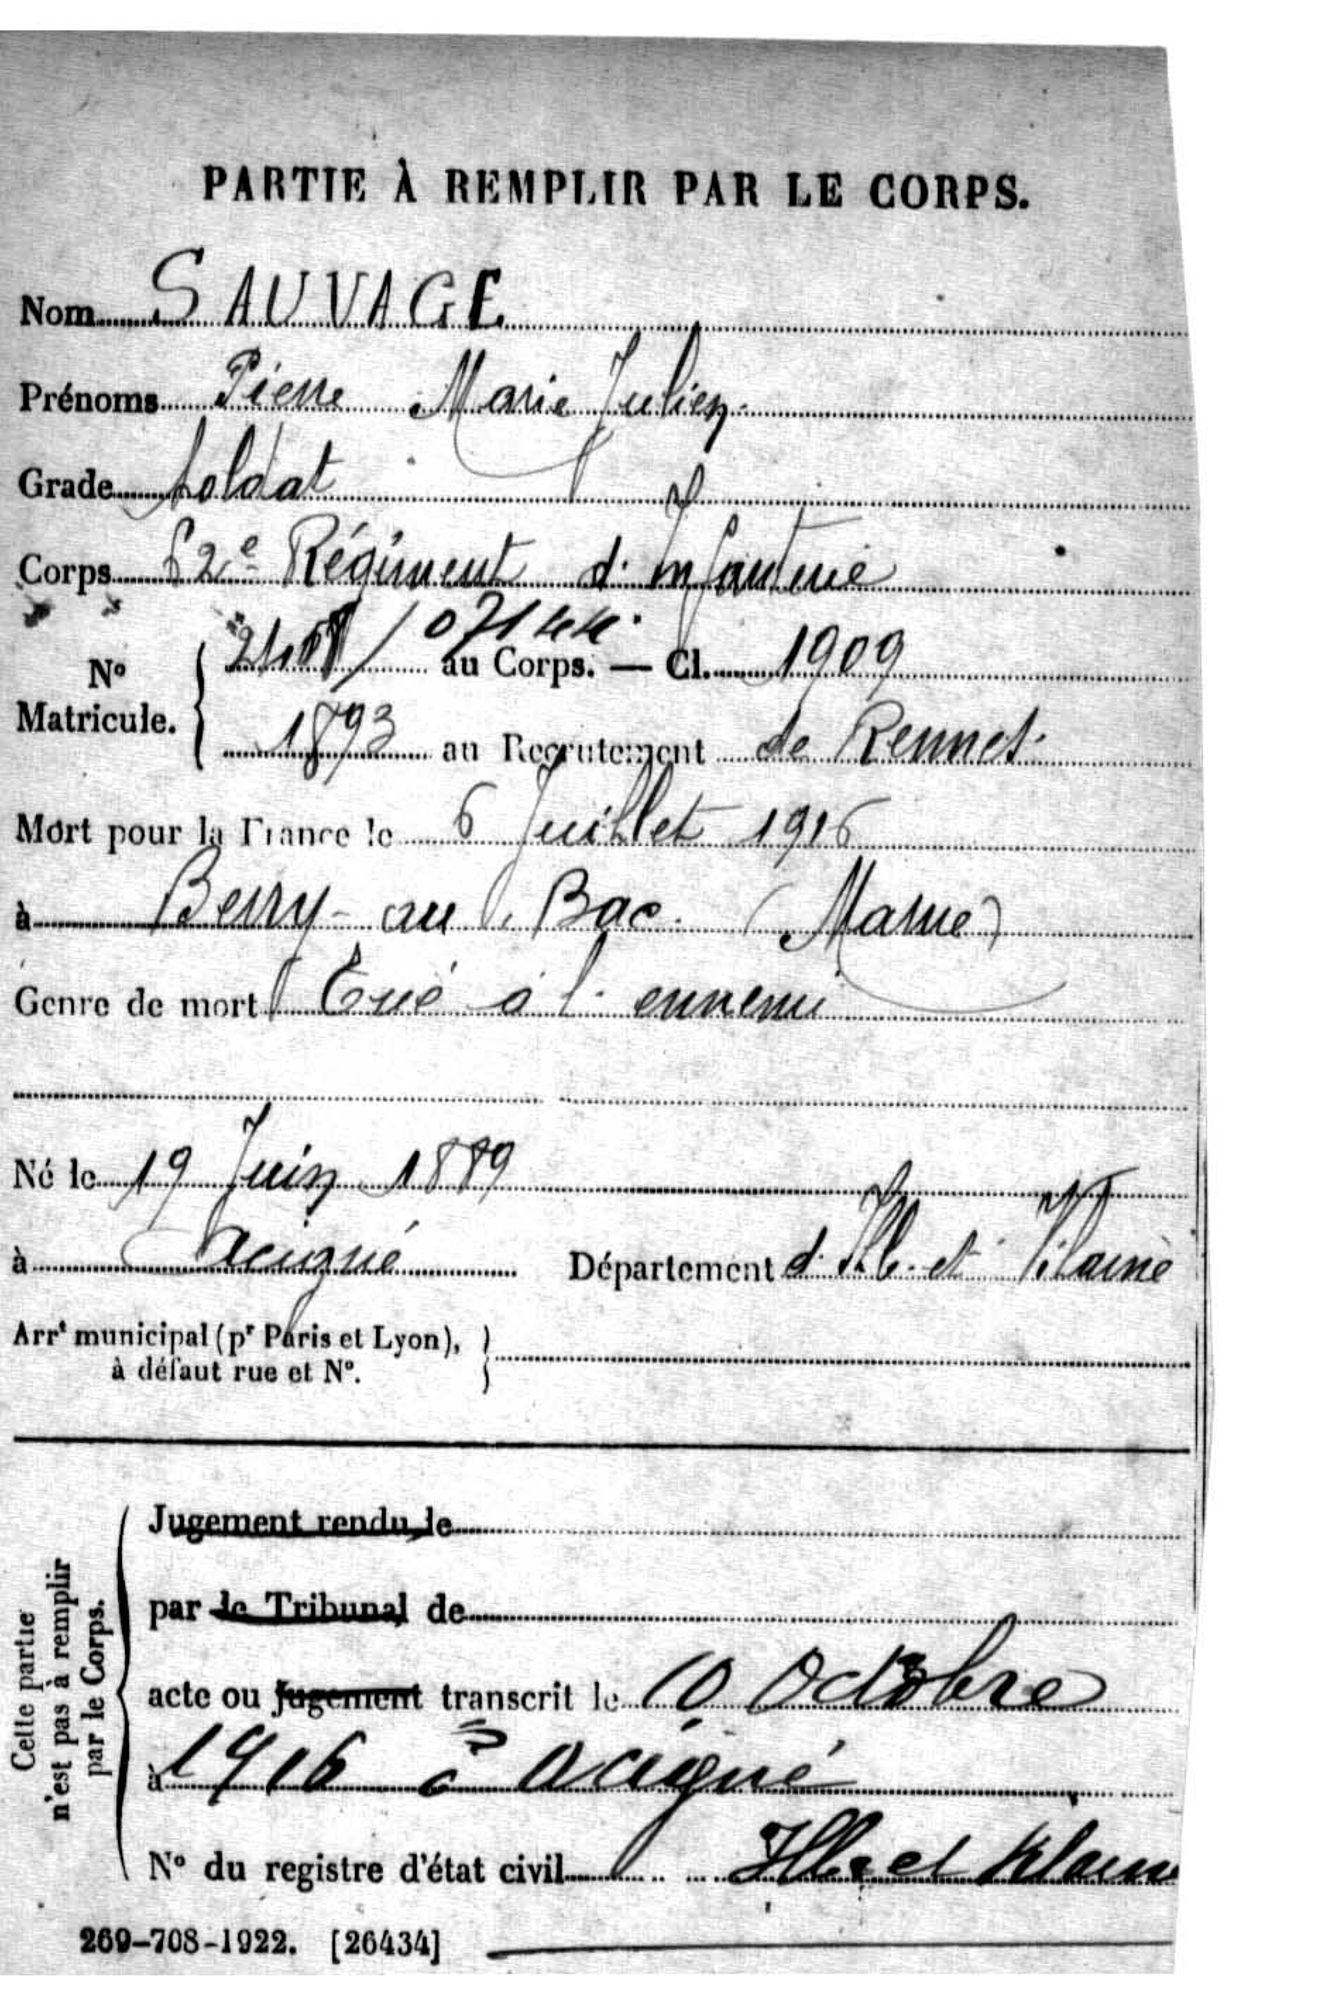 PARTIE À REMPLIR PAR LE CORPS.
Nom SAUVAGE
Prénoms Pierre Marie Julien
Grade Soldat
Corps 62e Régiment d'Infanterie
N° Matricule. / 07144. au Corps. — Cl. 1909
1893 au Recrutement de Rennes.
Mort pour la France le 6 Juillet 1916
à Berry-au-Bac. (Marne)
Genre de mort Tué à l'ennemi
Né le 19 Juin 1889
à Acigné Département d'Ille-et-Vilaine
Arrt municipal (pr Paris et Lyon),
à défaut rue et N°.
Cette partie
n'est pas à remplir
par le Corps.
Jugement rendu le
par le Tribunal de
acte ou jugement transcrit le 10 Octobre
à 1916 à Acigné
N° du registre d'état civil Ille et Vilaine
269-708-1922. [26434]